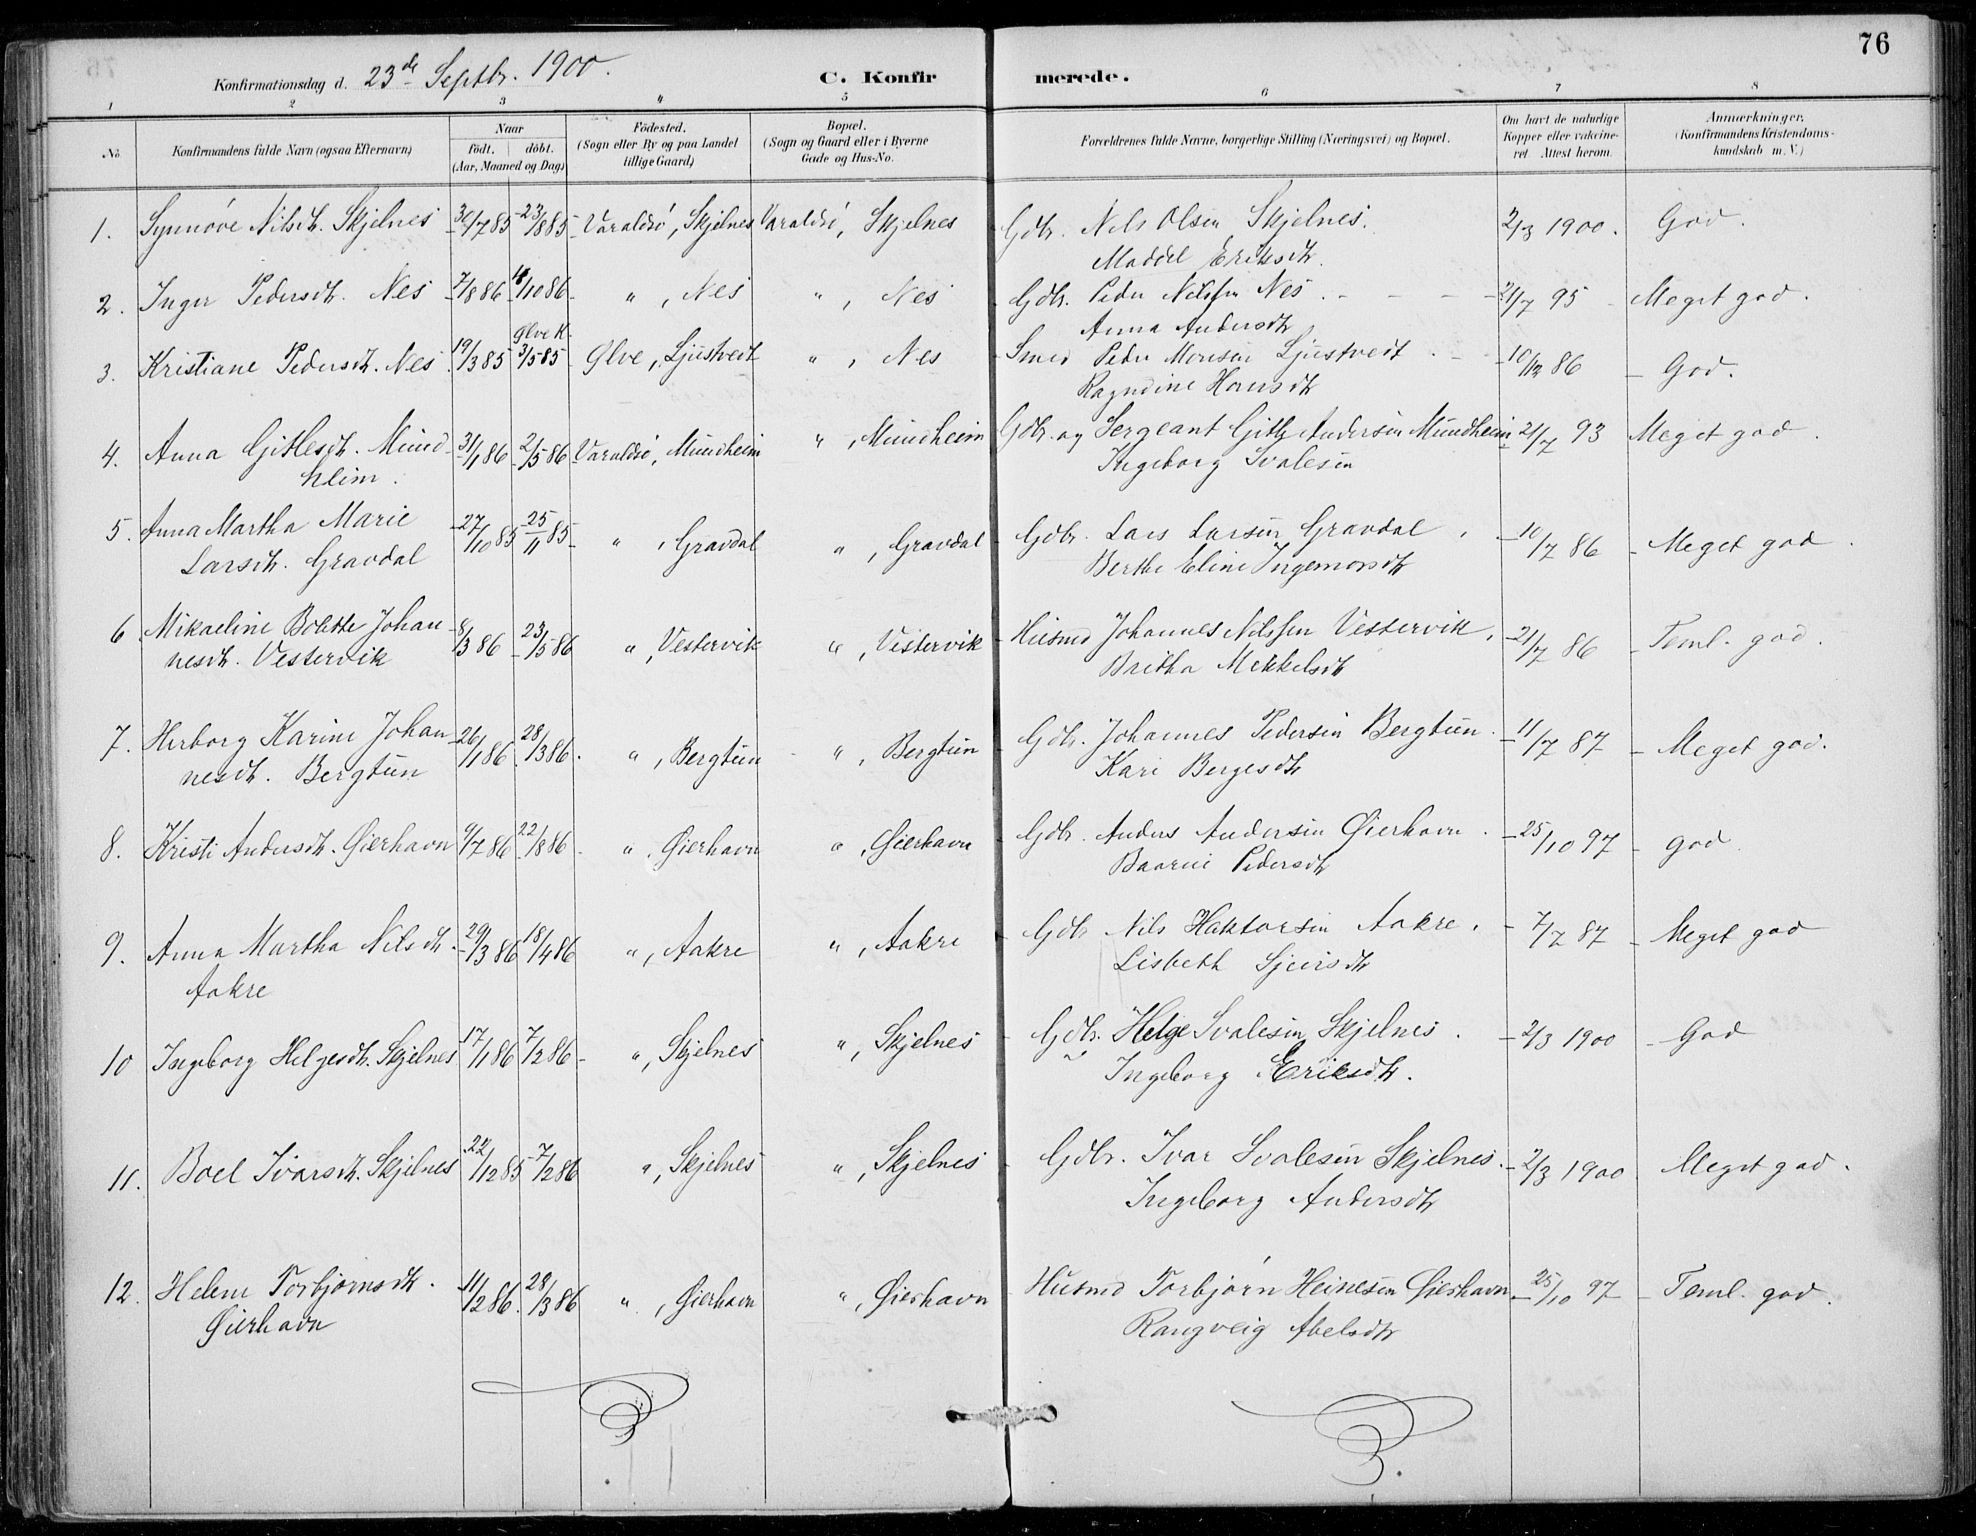 76
Konfirmationsdag d. 23de Septbr. 1900.
C. Konfirmerede.
1 2 3 4 5 6 7 8
No.
Konfirmandens fulde Navn (ogsaa Efternavn)
Naar
født. døbt.
(Aar, Maaned og Dag)
Fødested.
(Sogn eller By og paa Landet
tillige Gaard)
Bopæl.
(Sogn og Gaard eller i Byerne
Gade og Hus-No.
Forældrenes fulde Navne, borgerlige Stilling (Næringsvei) og Bopæl.
Om havt de naturlige
Kopper eller vakcine-
ret Attest herom.
Anmærkninger.
(Konfirmandens Kristendoms-
kundskab m. V.)
1. Synnöve Nilsdt. Skjelnes 30/7 85 23/8 85 Varaldsö, Skjelnes Varaldsö, Skjelnes Gdbr. Nils Olsen Skjelnes. 2/3 1900. God.
Maddel Eriksdt.
2. Inger Pedersdt. Nes 7/8 86 /10 86 " , Nes " , Nes Gdbr. Peder Nilssen Nes. 21/7 95 Meget god.
Anna Andersdt
Ølve K.
3. Kristiane Pedersdt. Nes 19/3 85 3/5 85 Ølve, Ljustvedt " , Nes Smed Peder Monsen Ljustvedt 86 God.
Ragndine Hansdt
4. Anna Gitlesdt. Mund- 31/1 86 2/5 86 Varaldsö, Mundheim " , Mundheim Gdbr. og Sergeant Gitle Andersen Mundheim 21/7 93 Meget god.
heim. Ingeborg Svalesen
5. Anna Martha Marie 27/10 85 25/11 85 " , Gravdal " , Gravdal Gdbr. Lars Larsen Gravdal, 10/7 86 Meget god.
Larsdt. Gravdal Berthe Eline Ingemorsdt
6. Mikaeline Bolette Johan- 8/3 86 23/5 86 " , Vestervik " , Vestervik Husmd Johannes Nilssen Vestervik, 21/7 86 Teml. god.
nesdt. Vestervik Britha Mekkelsdt
7. Herborg Karine Johan- 26/1 86 28/3 86. " , Bergtun " , Bergtun Gdbr. Johannes Pedersen Bergtun. 11/7 87 Meget god.
nesdt. Bergtun Kari Bergesdt
8. Kristi Andersdt. Gierhavn 9/7 86 22/8 86 " , Gierhavn " , Gierhavn Gdbr. Anders Andersen Øierhavn. 25/10 97 god
Pedersdt
9. Anna Martha Nilsdt. 29/3 86 18/4 86 " , Aakre " , Aakre Gdbr Nils Haktorsen Aakre. 7/7 87 Meget god
Aakre Lisbeth Sjursdt
10 Ingeborg Helgesdt. Skjelnes 17/1 86 7/2 86 " , Skjelnes " , Skjelnes Gdbr. Helge Svalesen Skjelnes. 2/3 1900 God
Ingeborg Eriksdt.
11. Boel Ivarsdt. Skjelnes 22/12 85 7/2 86 " , Skjelnes " , Skjelnes Gdbr. Ivar Svalesen Skjelnes. 2/3 1900 Meget god.
Ingeborg Andersdt
12. Helene Torbjørnsdt. 11/2 86. 28/3 86 " , Øierhavn " , Øierhavn Husmd Torbjørn Heinesen Øierhavn 25/10 97 Teml. god.
Øierhavn Rangveig Abelsdt